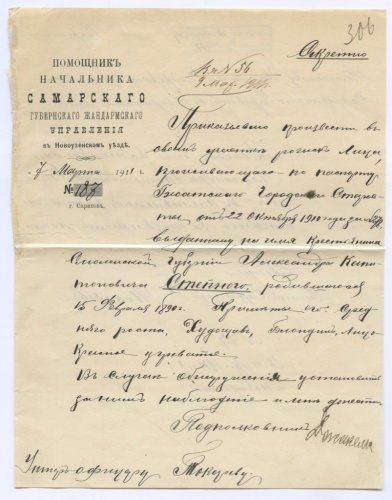 306
Секретно
ПОМОЩНИКЪ
НАЧАЛЬНИКА
САМАРСКАГО
ГУБЕРНСКАГО ЖАНДАРМСКАГО
УПРАВЛЕНІЯ
въ Новоузенскомъ уѣздѣ.
7 Марта 1911 г.
№ 187
г. Саратовъ.
Вх № 56
9 Мар. 1911 г.
Приказываю произвести въ
своемъ участкѣ розыскъ лица,
проживающаго по паспорту
Городского Старос
ты, отъ 22 Октября 1910 года за №
выданному на имя Крестьянина
Смоленской Губерніи Александра Капи
тоновича Степного, родившагося
15 Февраля 1890 г. Примѣты его: Сред
няго роста, Худощавъ, блондинъ, лицо
Красное угреватое.
Въ случаѣ обнаруженія установить
за нимъ наблюденіе и мнѣ донести.
Подполковникъ
Унтеръ-офицеру Токареву.